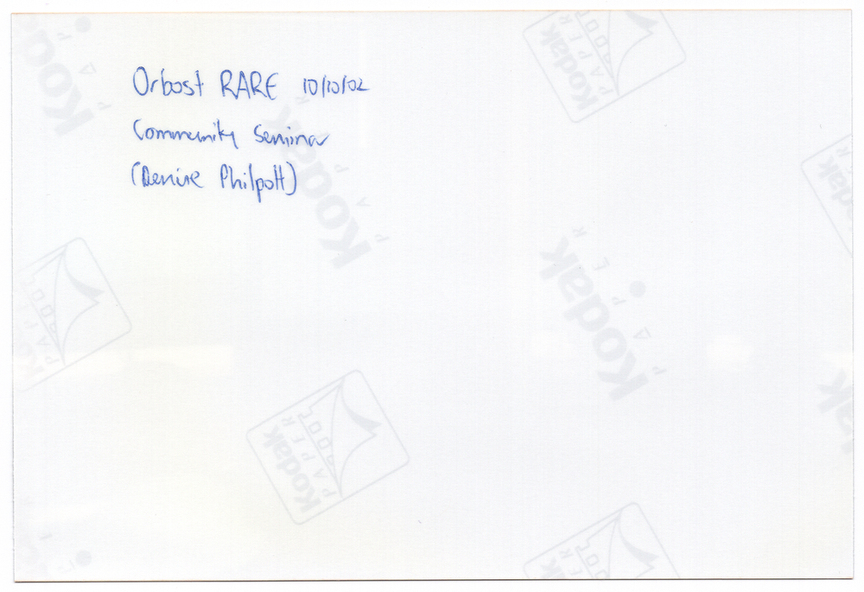 Orbost RARE 10/10/02
Community Seminar
(Denise Philpott)
Kodak
PAPER
Kodak
PAPER
Kodak
PAPER
Kodak
Kodak
PAPER
PAPER
Kodak
PAPER
Kodak